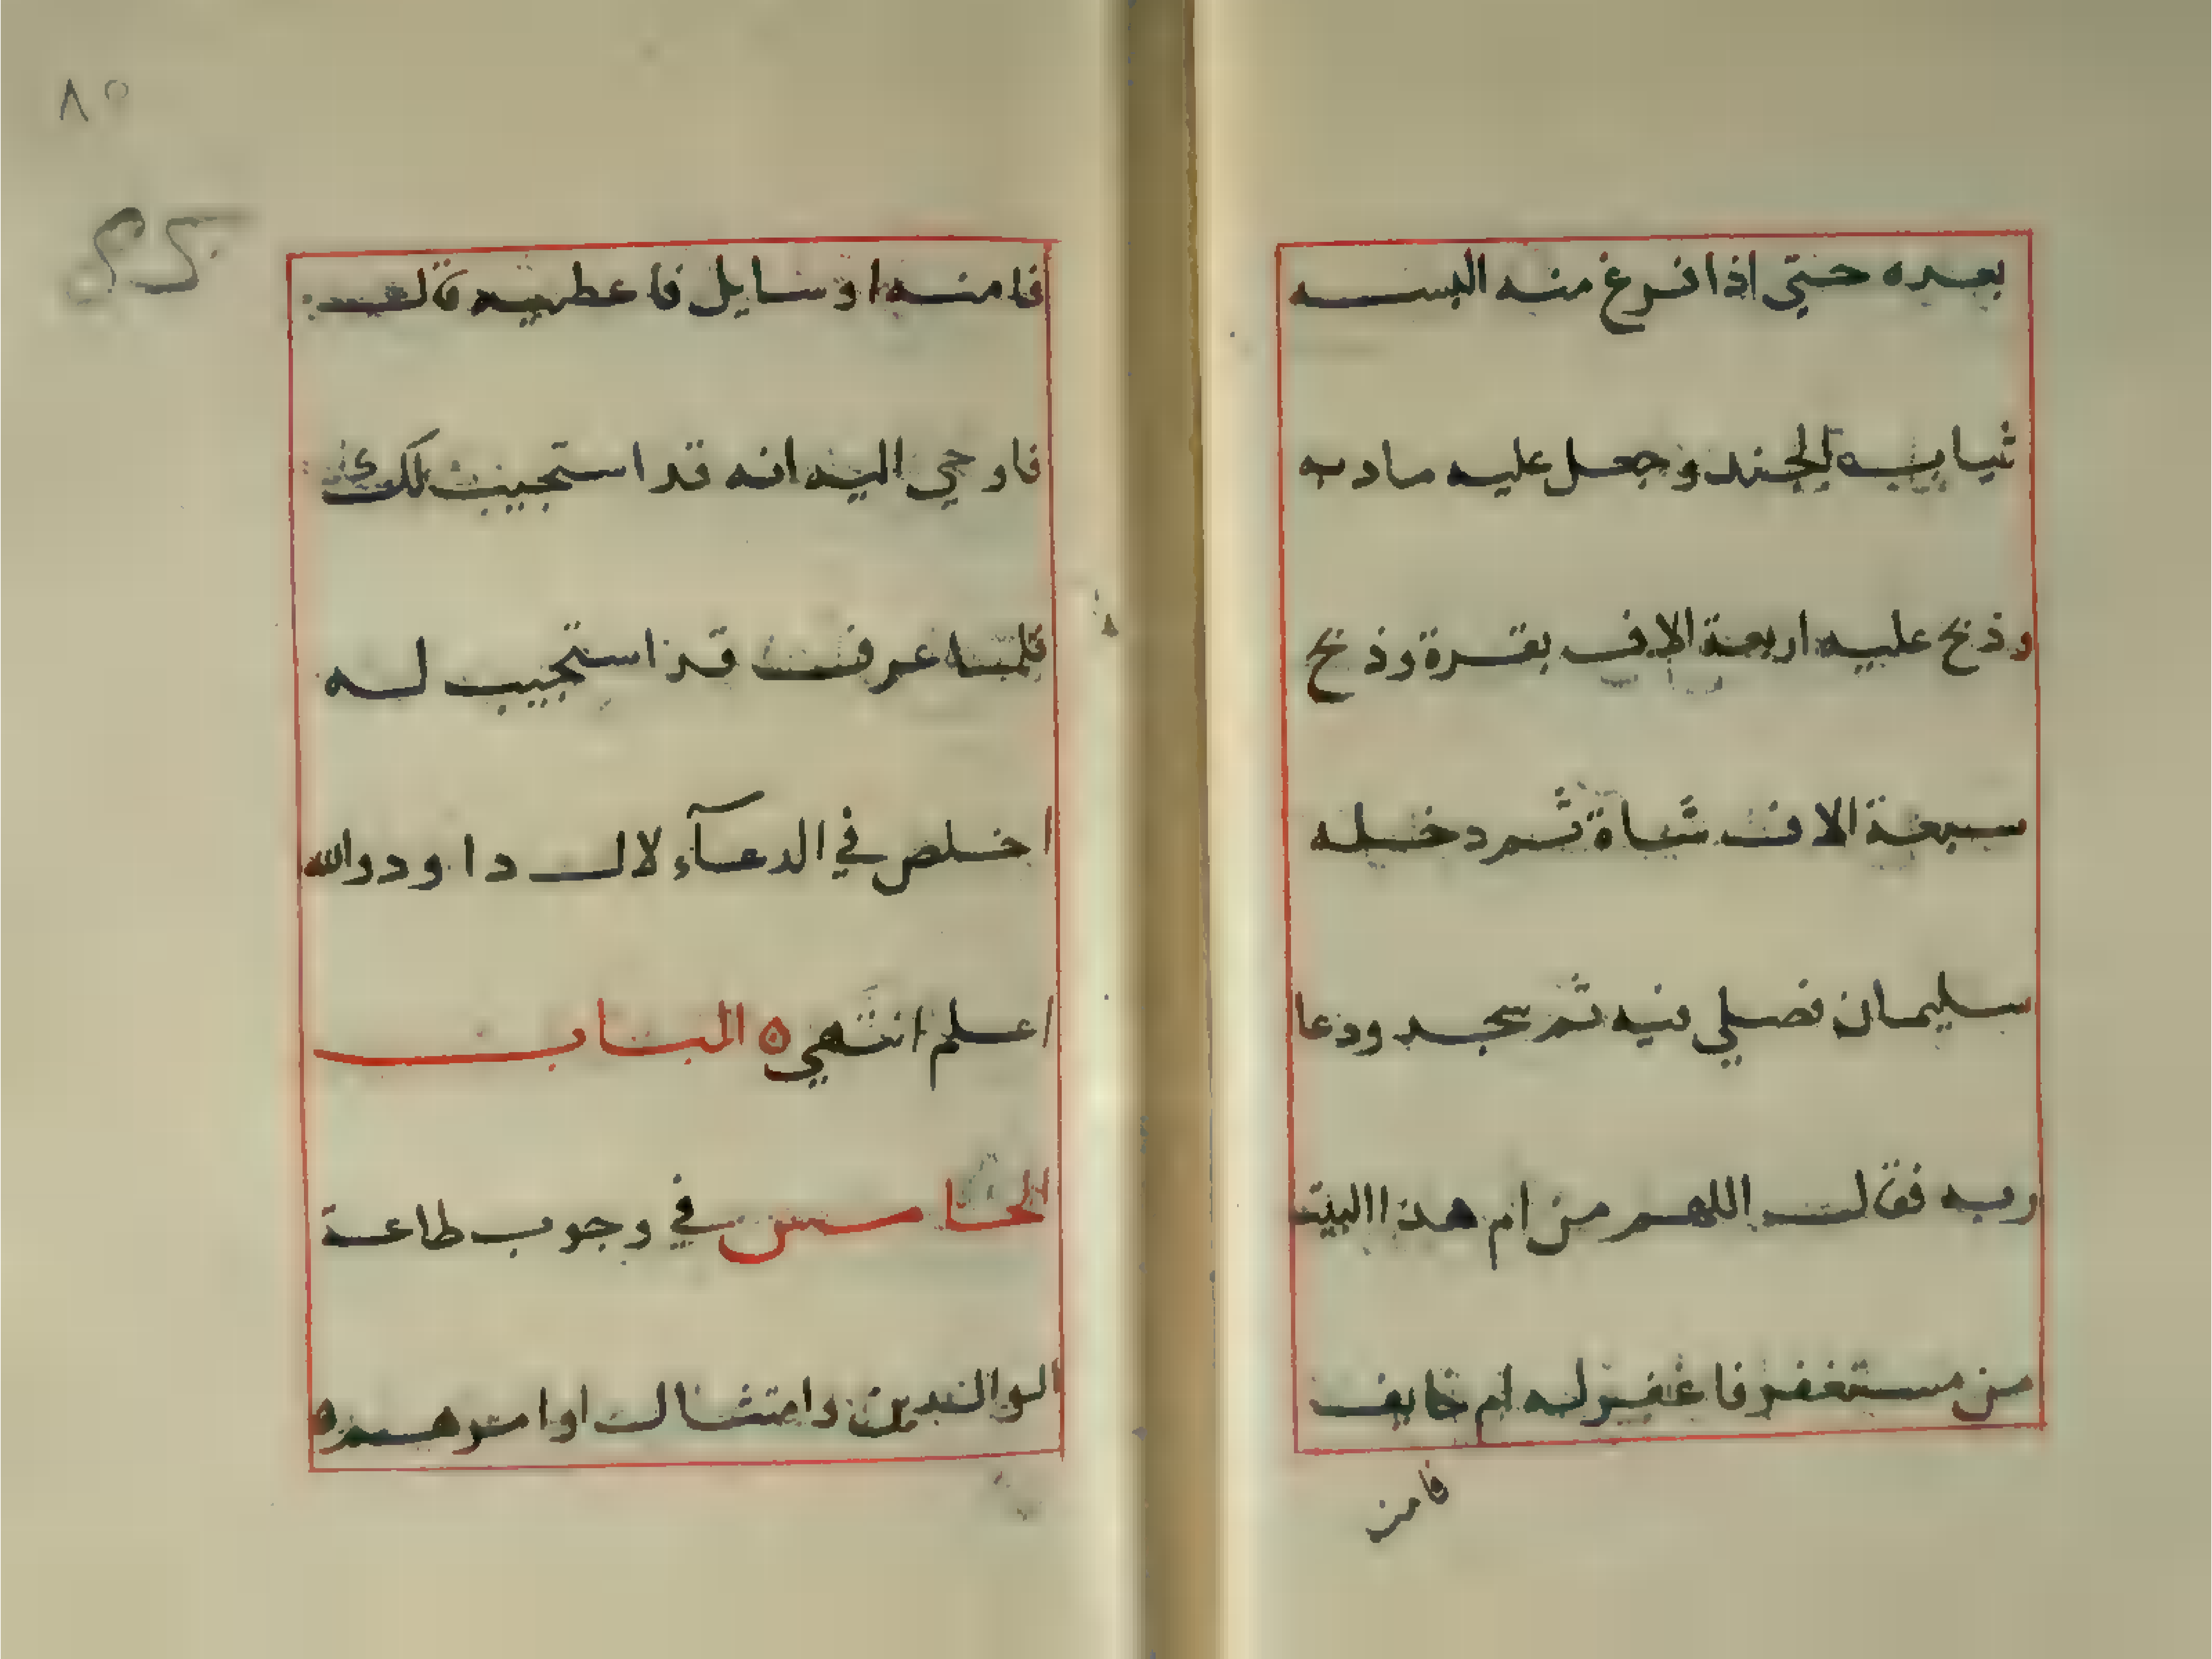 بعده حتى اذا فرغ منه البسه
ثيابه الجند وجعل عليه مادبه
وذبح عليه اربعة الاف بقرة وذبح
سبعة الاف شاة ثم دخله
سليمان فصلي فيه ثم سجد ودعا
ربه فقال اللهم من ام هذا البيت
من مستغفر فاغفر له ام خايف
فامن
٨٥
فامنه او سايل فاعطيه قال
فاوحي اليه انه قد استجيت لك
قلت عرفت قد استجيب له
اخلص في الدعآء لال داوود والله
اعلم انتهي ٥ الباب
الخامس في وجوب طاعة
الوالدين وامتثال اوامرهم ٥